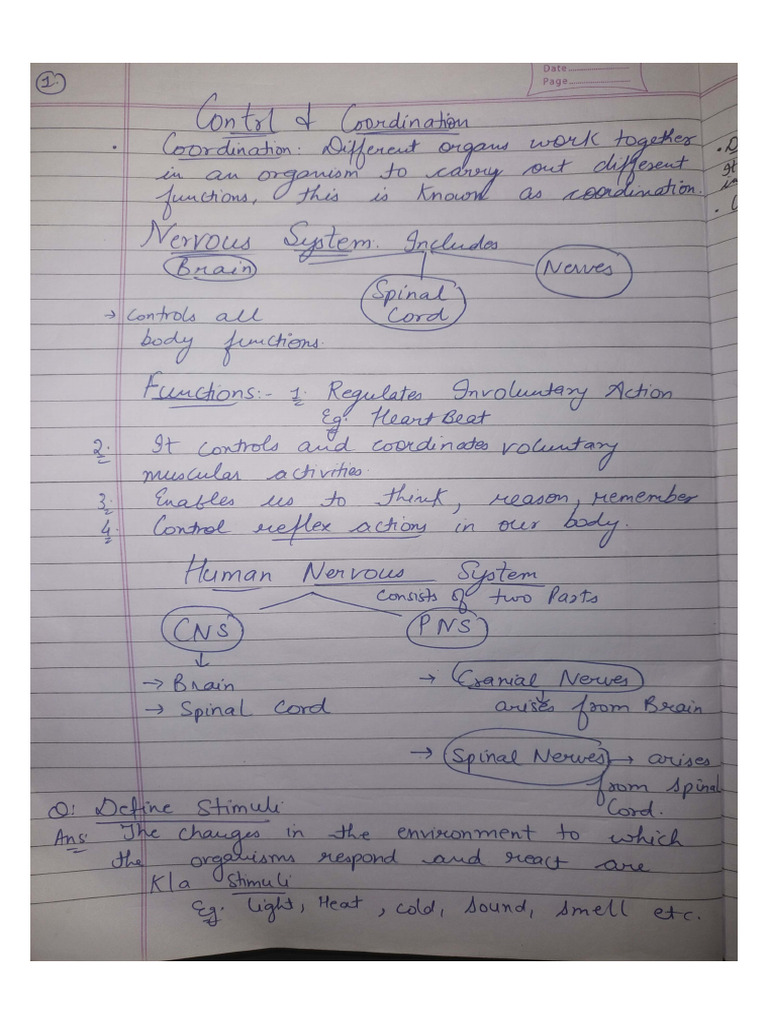 Date
Page
1.
Contrl & Coordination
• Coordination: Different organs work together
in an organism to carry out different
functions, this is known as coordination.
Nervous System: Includes
Brain
Nerves
Spinal
Cord
→ controls all
body functions.
Functions:- 1. Regulates Involuntary Action
Eg. Heart Beat
2. It controls and coordinates voluntary
muscular activities.
3. Enables us to think, reason, remember
4. Control reflex actions in our body.
Human Nervous System
consists of two Parts
CNS
PNS
→ Brain
→ Spinal Cord
→ Cranial Nerves
arises from Brain
→ Spinal Nerves → arises
from spinal
Cord.
Q: Define Stimuli
Ans: The changes in the environment to which
the organisms respond and react are
K/a Stimuli
Eg. light, Heat, cold, sound, smell etc.